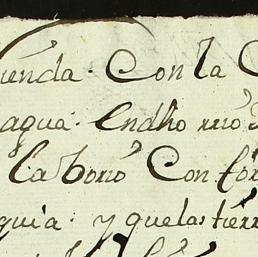 ienda. Con la C
agua: Endho rrio
laborio Con for
guia: y quelas tierr